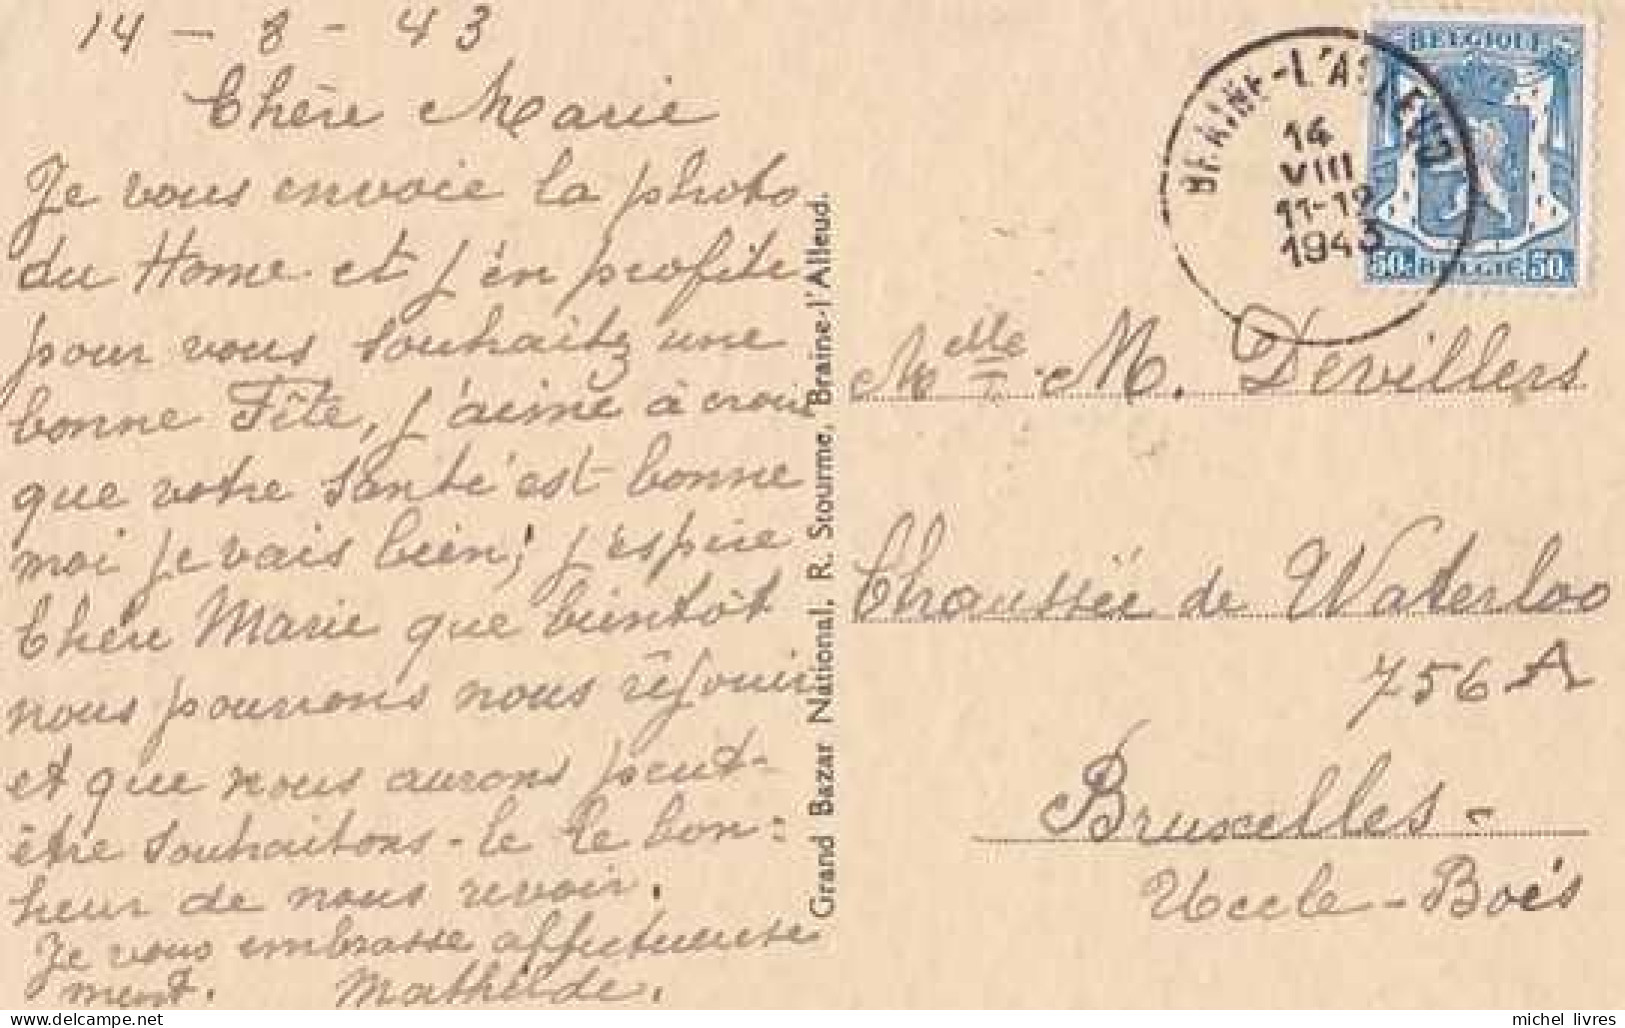 14 - 8 - 43
Chère Marie
Je vous envoie la photo
du Home et j'en profite
pour vous souhaitez une
bonne Fête, j'aime à croire
que votre santé est bonne
moi je vais bien, j'espère
Chère Marie que bientôt
nous pourrons nous réjouir
et que nous aurons peut-
être souhaitons-le le bon=
heur de nous revoir.
Je vous embrasse affectueuse
ment. Mathilde.
Grand Bazar National. R. Stourme, Braine-l'Alleud.
BRAINE-L'ALLEUD
14
VIII
11-12
1943
BELGIQUE
50. BELGIE 50.
Melle M. Devillers
Chaussée de Waterloo
756 A
Bruxelles-
Uccle-Bois
michel_livres